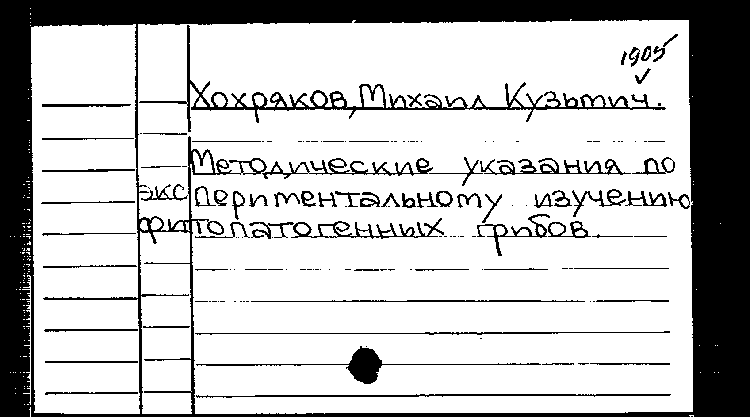 1905
Хохряков, Михаил Кузьмич.
Методические указания по
экспериментальному изучению
фитопатогенных грибов.